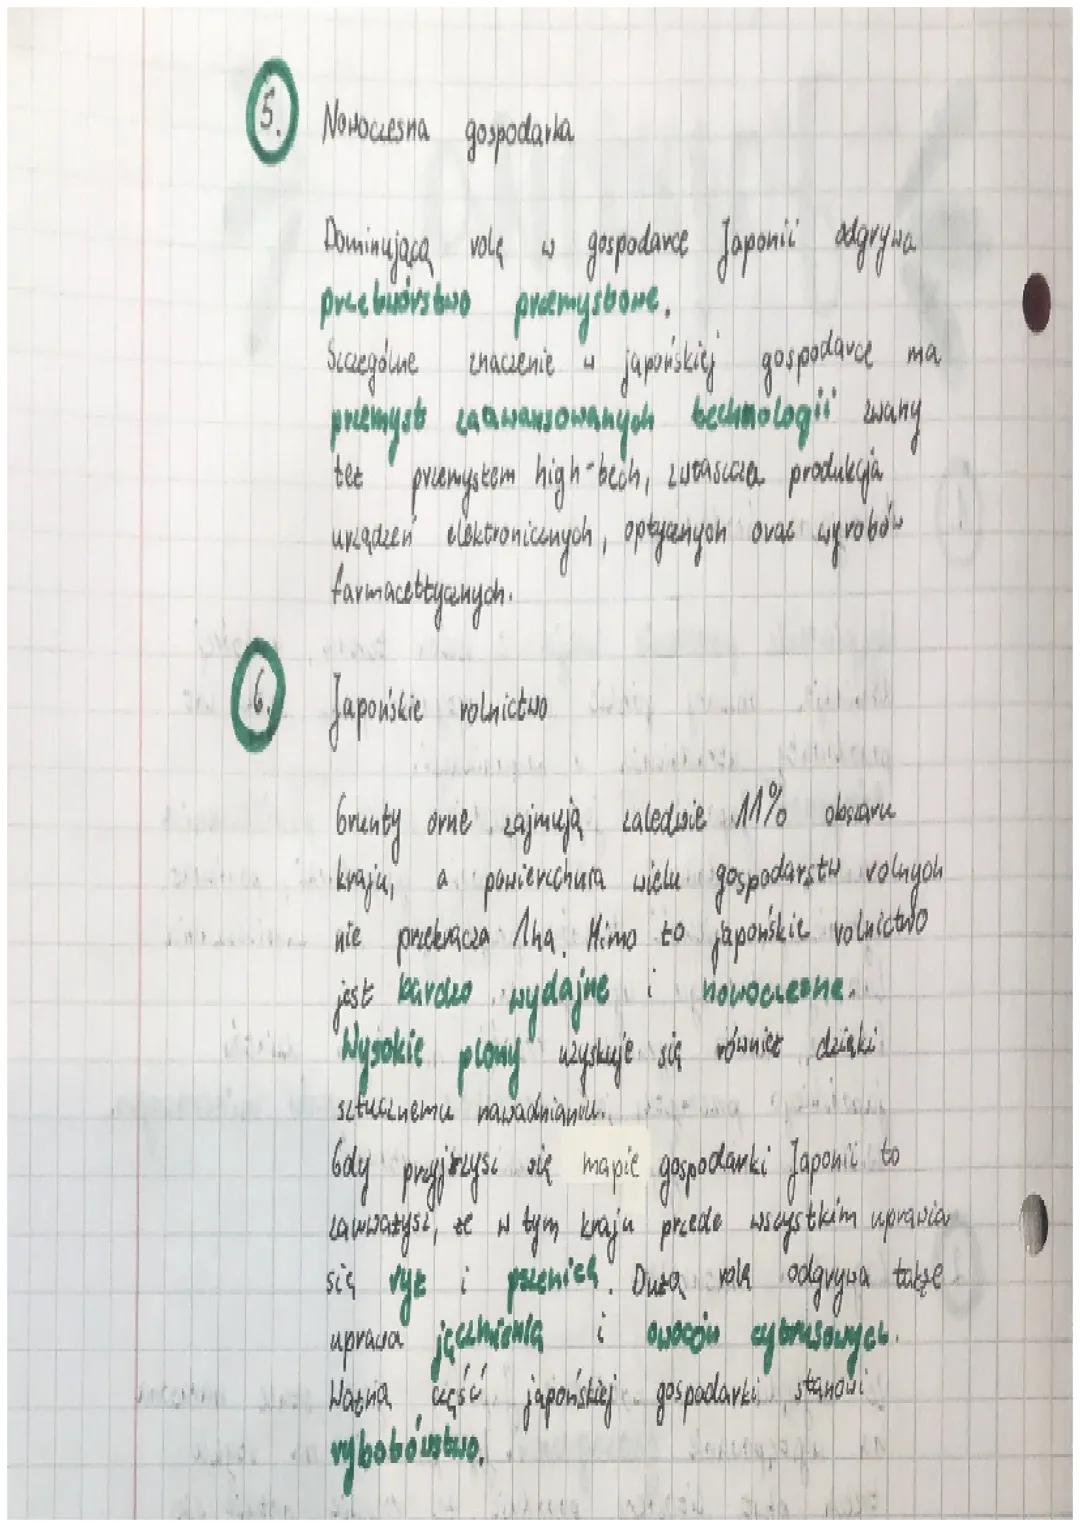 5. Nowoczesna gospodarka
Dominującą rolę w gospodarce Japonii odgrywa
przetwórstwo przemysłowe.
Szczególne znaczenie w japońskiej gospodarce ma
przemysł zaawansowanych technologii zwany
też przemysłem high-tech, zwłaszcza produkcja
urządzeń elektronicznych, optycznych oraz wyrobów
farmaceutycznych.
6. Japońskie rolnictwo
Grunty orne zajmują zaledwie 11% obszaru
kraju, a powierzchnia wielu gospodarstw rolnych
nie przekracza 1ha. Mimo to japońskie rolnictwo
jest bardzo wydajne i nowoczesne.
Wysokie plony uzyskuje się również dzięki
sztucznemu nawadnianiu.
Gdy przyjrzysz się mapie gospodarki Japonii to
zauważysz, że w tym kraju przede wszystkim uprawia
się ryż i pszenicę. Dużą rolę odgrywa także
uprawa jęczmienia i owoców cytrusowych.
Ważną część japońskiej gospodarki stanowi
rybołówstwo.